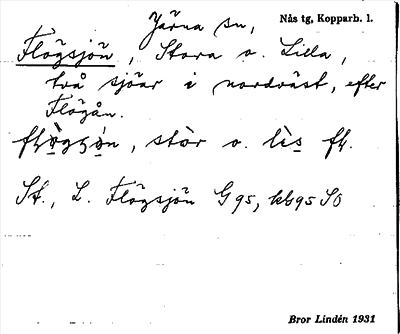 Järna sn, Nås tg, Kopparb. l.
Flögsjön, Stora o. Lilla,
två sjöar i nordväst, efter
Flögån.
stòr o. lìs
St., L. Flögsjön G 95, kb 95 SO
Bror Lindén 1931